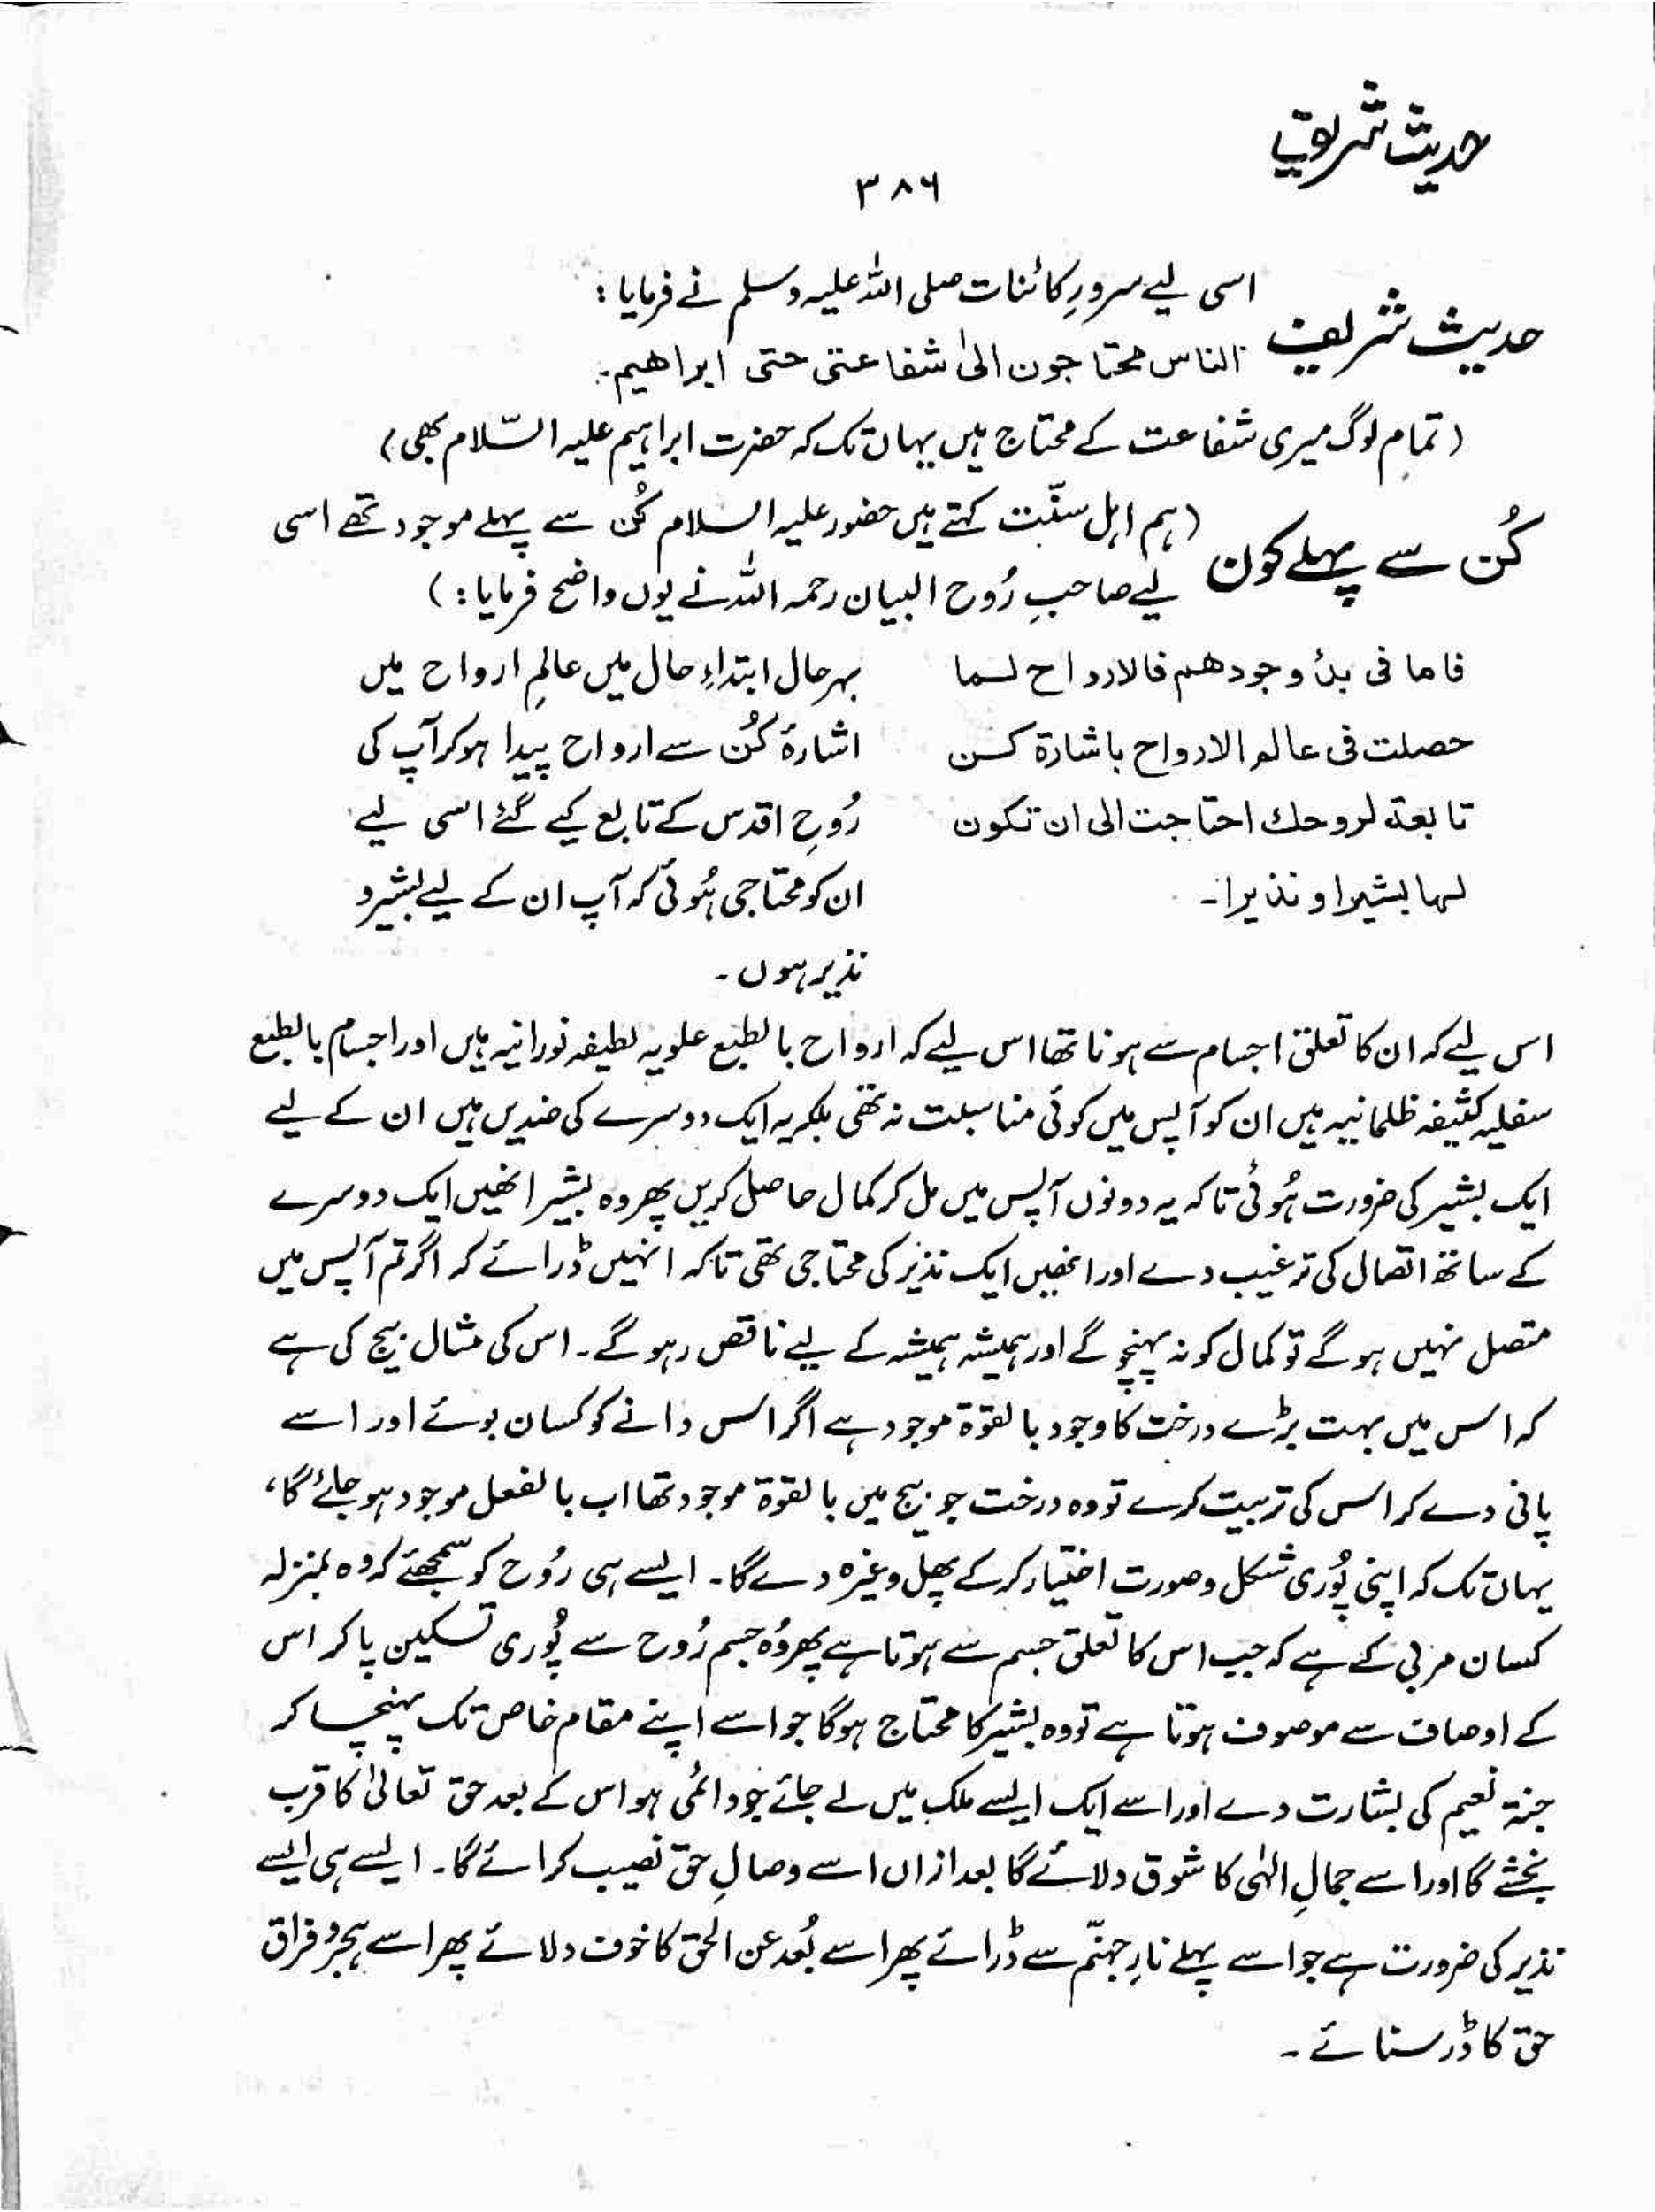 حدیث شریف
۳۸۶
اسی لیے سرورِ کائنات صلی اللہ علیہ وسلم نے فرمایا :
حدیث شریف
الناس محتاجون الیٰ شفاعتی حتی ابراھیم۔
(تمام لوگ میری شفاعت کے محتاج ہیں یہاں تک کہ حضرت ابراہیم علیہ السّلام بھی)
کُن سے پہلے کون
(ہم اہل سنّت کہتے ہیں حضور علیہ السلام کُن سے پہلے موجود تھے اسی
لیے صاحبِ رُوح البیان رحمہ اللہ نے یوں واضح فرمایا : )
فاما فی بدٔ وجودھم فالارواح لسما
حصلت فی عالم الارواح باشارۃ کسن
تابعۃ لروحك احتاجت الی ان تکون
لہا بشیرا و نذیرا۔
بہرحال ابتداءِ حال میں عالمِ ارواح میں
اشارۂ کُن سے ارواح پیدا ہو کر آپ کی
رُوحِ اقدس کے تابع کیے گئے اسی لیے
ان کو محتاجی ہُوئی کہ آپ ان کے لیے بشیر و
نذیر ہوں ۔
اس لیے کہ ان کا تعلق اجسام سے ہونا تھا اس لیے کہ ارواح بالطبع علویہ لطیفہ نورانیہ ہیں اور اجسام بالطبع
سفلیہ کثیفہ ظلمانیہ ہیں ان کو آپس میں کوئی مناسبت نہ تھی بلکہ یہ ایک دوسرے کی ضدیں ہیں ان کے لیے
ایک بشیر کی ضرورت ہُوئی تاکہ یہ دونوں آپس میں مل کر کمال حاصل کریں پھر وہ بشیر انھیں ایک دوسرے
کے ساتھ اتصال کی ترغیب دے اور انھیں ایک نذیر کی محتاجی تھی تاکہ انہیں ڈرائے کہ اگر تم آپس میں
متصل نہیں ہو گے تو کمال کو نہ پہنچو گے اور ہمیشہ ہمیشہ کے لیے ناقص رہو گے۔ اس کی مثال بیج کی ہے
کہ اس میں بہت بڑے درخت کا وجود بالقوۃ موجود ہے اگر اس دانے کو کسان بوئے اور اسے
پانی دے کر اس کی تربیت کرے تو وہ درخت جو بیج میں بالقوۃ موجود تھا اب بالفعل موجود ہو جائے گا،
یہاں تک کہ اپنی پُوری شکل و صورت اختیار کر کے پھل وغیرہ دے گا۔ ایسے ہی رُوح کو سمجھئے کہ وہ بمنزلہ
کسان مربی کے ہے کہ جب اس کا تعلق جسم سے ہوتا ہے پھر وُہ جسم رُوح سے پُوری تسکین پا کر اس
کے اوصاف سے موصوف ہوتا ہے تو وہ بشیر کا محتاج ہوگا جو اسے اپنے مقام خاص تک پہنچا کر
جنۃ نعیم کی بشارت دے اور اسے ایک ایسے ملک میں لے جائے جو دائمی ہو اس کے بعد حق تعالیٰ کا قرب
بخشے گا اور اسے جمالِ الٰہی کا شوق دلائے گا بعد ازاں اسے وصالِ حق نصیب کرائے گا۔ ایسے ہی ایسے
نذیر کی ضرورت ہے جو اسے پہلے نارِ جہنّم سے ڈرائے پھر اسے بُعد عن الحق کا خوف دلائے پھر اسے ہجر و فراق
حق کا ڈر سنائے ۔